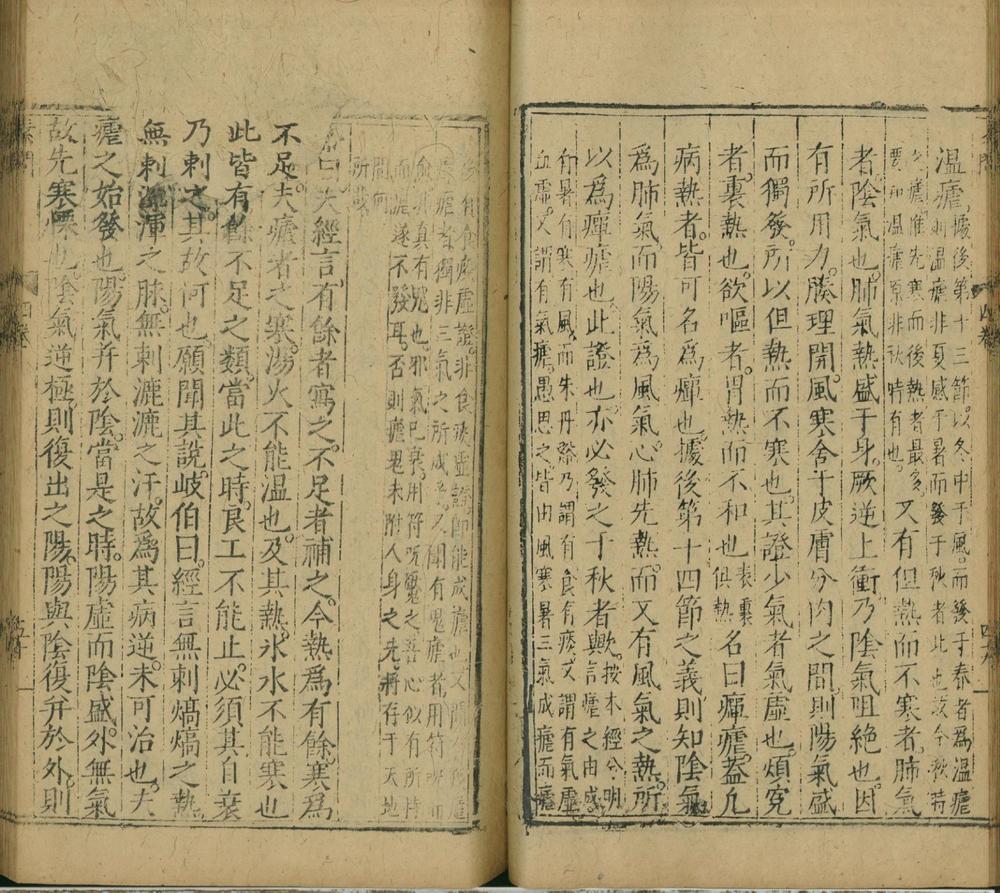 溫瘧據後第十三節以冬中于風而發于春者爲溫瘧
則溫瘧非夏感于暑而發于秋者此也茲今秋時
之瘧惟先寒而後熱者最多
要知溫瘧原非秋時有也又有但熱而不寒者肺氣
者陰氣也肺氣熱盛于身厥逆上衝乃陰氣咀絶也因
有所用力腠理開風寒舍于皮膚分肉之間則陽氣盛
而獨發所以但熱而不寒也其證少氣者氣虛也煩寃
者裏熱也欲嘔者胃熱而不和也表裏俱熱名曰癉瘧蓋凡
病熱者皆可名爲癉也據後第十四節之義則知陰氣
爲肺氣而陽氣爲風氣心肺先熱而又有風氣之熱所
以爲癉瘧也此證也亦必發之于秋者歟按本經分明言瘧之由成
有暑有寒有風而朱丹溪乃謂有食有痰又謂有氣虛
血虛又謂有氣瘧愚思之皆由風寒暑三氣成瘧而瘧
虛證非食
瘧者獨非三氣之所成又聞有鬼瘧者用符
真有鬼也邪氣已衰用符呪魘之吾心似有所恃
而瘧遂不發耳否則瘧鬼未附人身之先將存于天地
間何
所哉
曰夫經言有餘者寫之不足者補之今熱爲有餘寒爲
不足夫瘧者之寒湯火不能溫也及其熱氷水不能寒也
此皆有餘不足之類當此之時良工不能止必須其自衰
乃刺之其故何也願聞其說岐伯曰經言無刺熇熇之熱
無刺渾渾之脉無刺漉漉之汗故爲其病逆未可治也夫
瘧之始發也陽氣幷於陰當是之時陽虛而陰盛外無氣
故先寒慄也陰氣逆極則復出之陽陽與陰復幷於外則